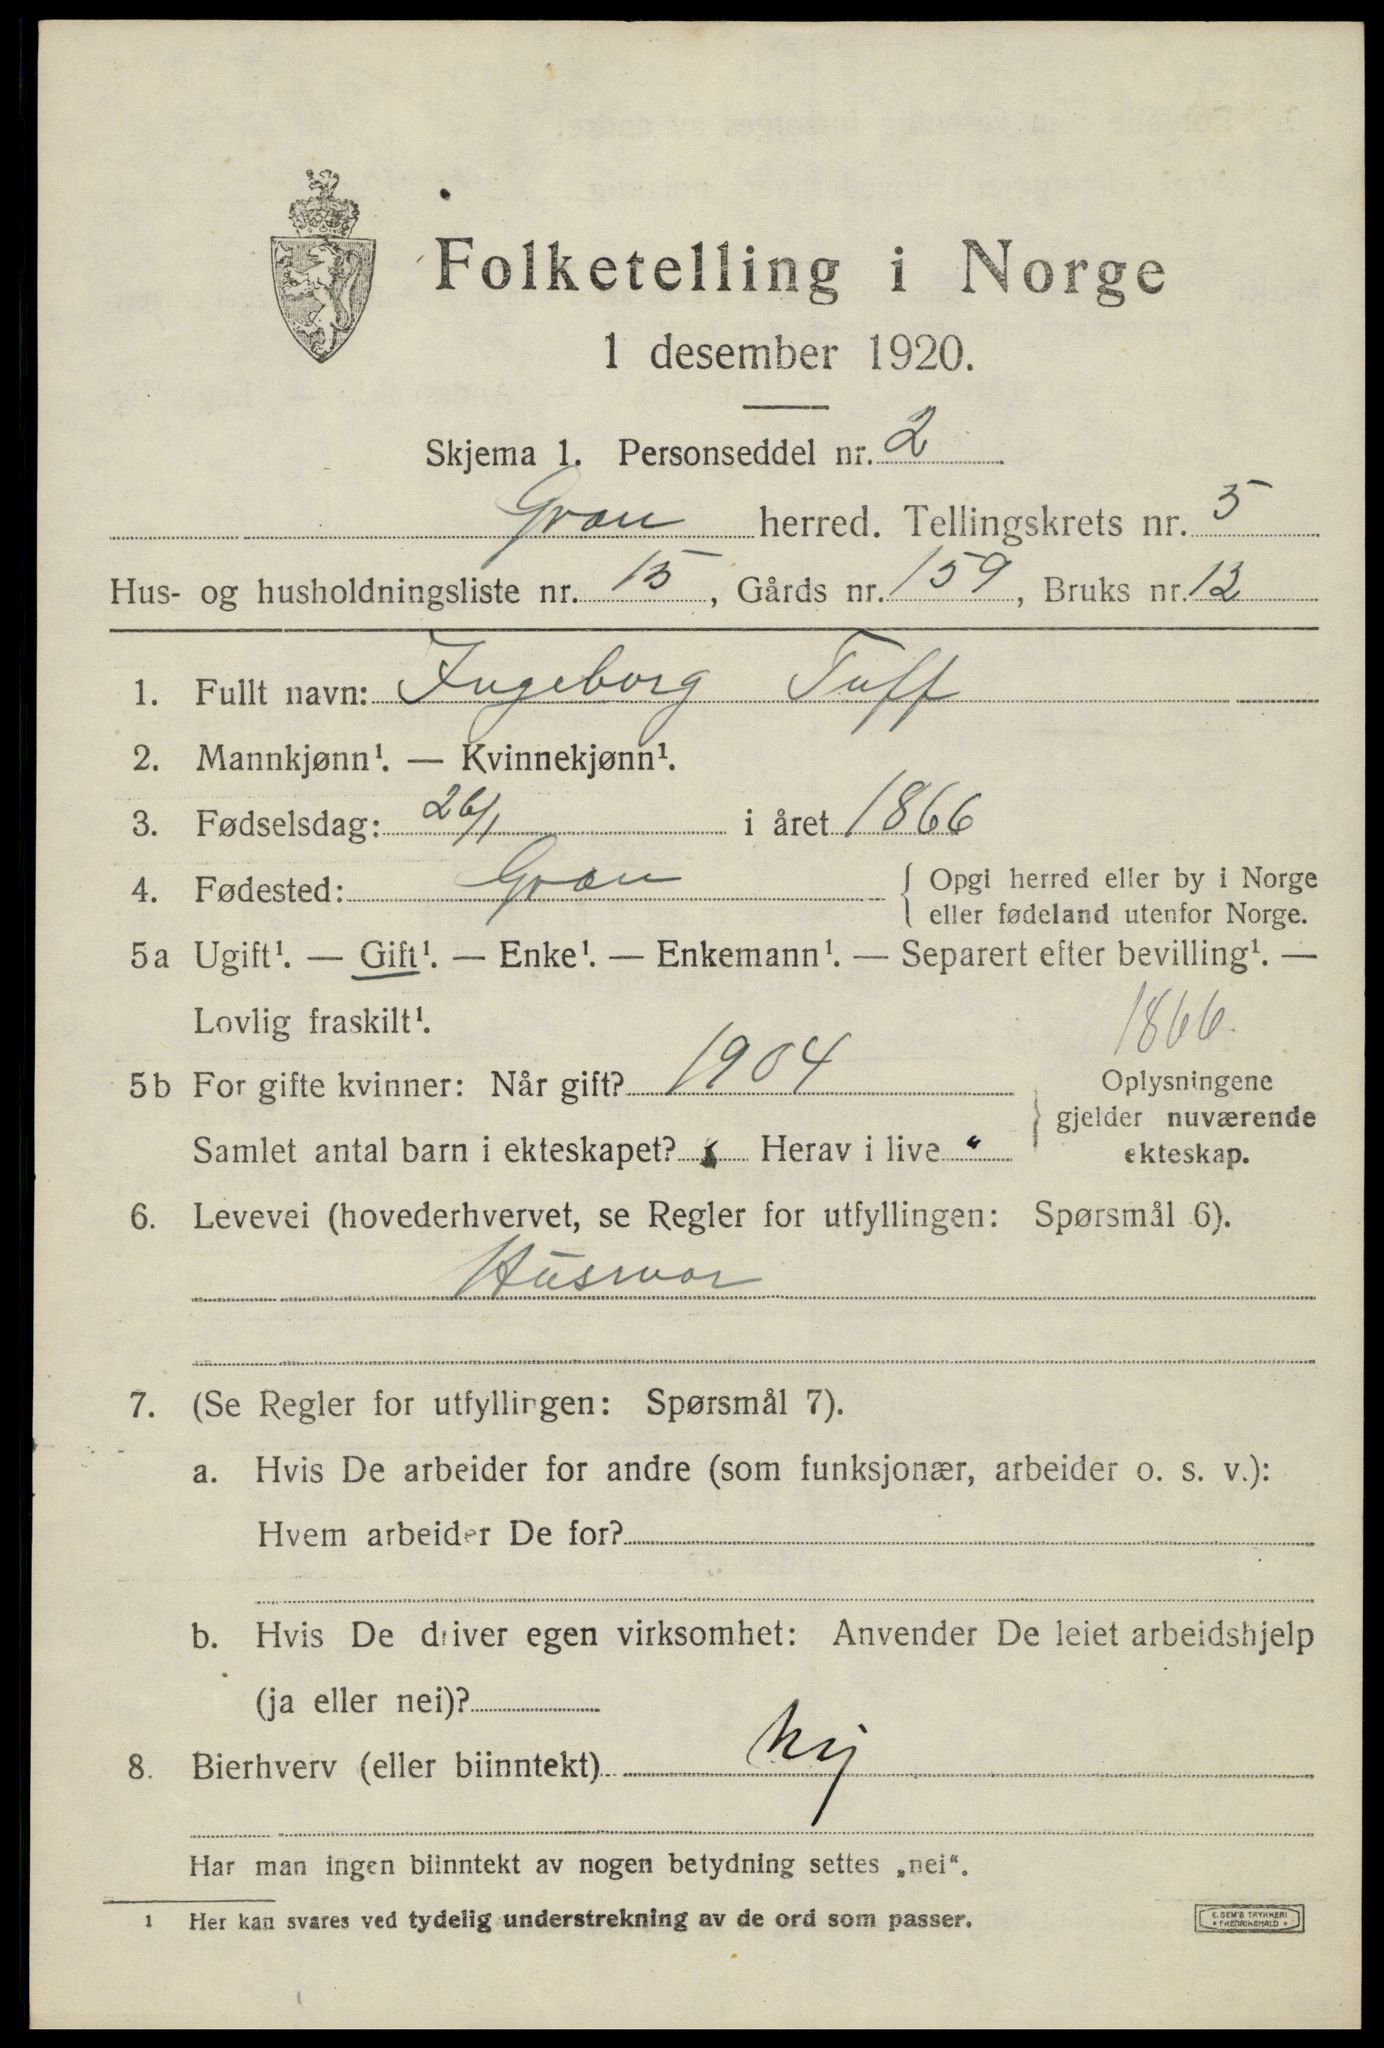 Folketelling i Norge
1 desember 1920.
Skjema 1. Personseddel nr. 2
Gran herred. Tellingskrets nr. 5
Hus- og husholdningsliste nr. 15, Gårds nr. 159, Bruks nr. 12
1. Fullt navn: Ingeborg Tuff
2. Mannkjønn¹. — Kvinnekjønn¹.
3. Fødselsdag: 26/1 i året 1866
4. Fødested: Gran { Opgi herred eller by i Norge
eller fødeland utenfor Norge.
5a Ugift¹. — Gift¹. — Enke¹. — Enkemann¹. — Separert efter bevilling¹. —
Lovlig fraskilt¹.
1866.
5b For gifte kvinner: Når gift? 1904
Samlet antal barn i ekteskapet? Herav i live "
} Oplysningene
gjelder nuværende
ekteskap.
6. Levevei (hovederhvervet, se Regler for utfyllingen: Spørsmål 6).
Husmor
7. (Se Regler for utfyllingen: Spørsmål 7).
a. Hvis De arbeider for andre (som funksjonær, arbeider o. s. v.):
Hvem arbeider De for?
b. Hvis De driver egen virksomhet: Anvender De leiet arbeidshjelp
(ja eller nei)?
8. Bierhverv (eller biinntekt) Nej
Har man ingen biinntekt av nogen betydning settes „nei“.
1 Her kan svares ved tydelig understrekning av de ord som passer.
E. SEM'S TRYKKERI
* FREDRIKSHALD *